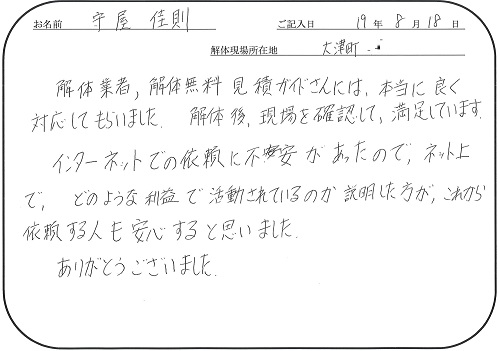 お名前 守屋 佳則 ご記入日 19年 8月 18日
解体現場所在地 大津町
解体業者,解体無料見積ガイドさんには,本当に良く
対応してもらいました. 解体後,現場を確認して,満足しています.
インターネットでの依頼に不安があったので,ネット上
で, どのような利益で活動されているのか説明した方が,これから
依頼する人も安心すると思いました.
ありがとうございました.